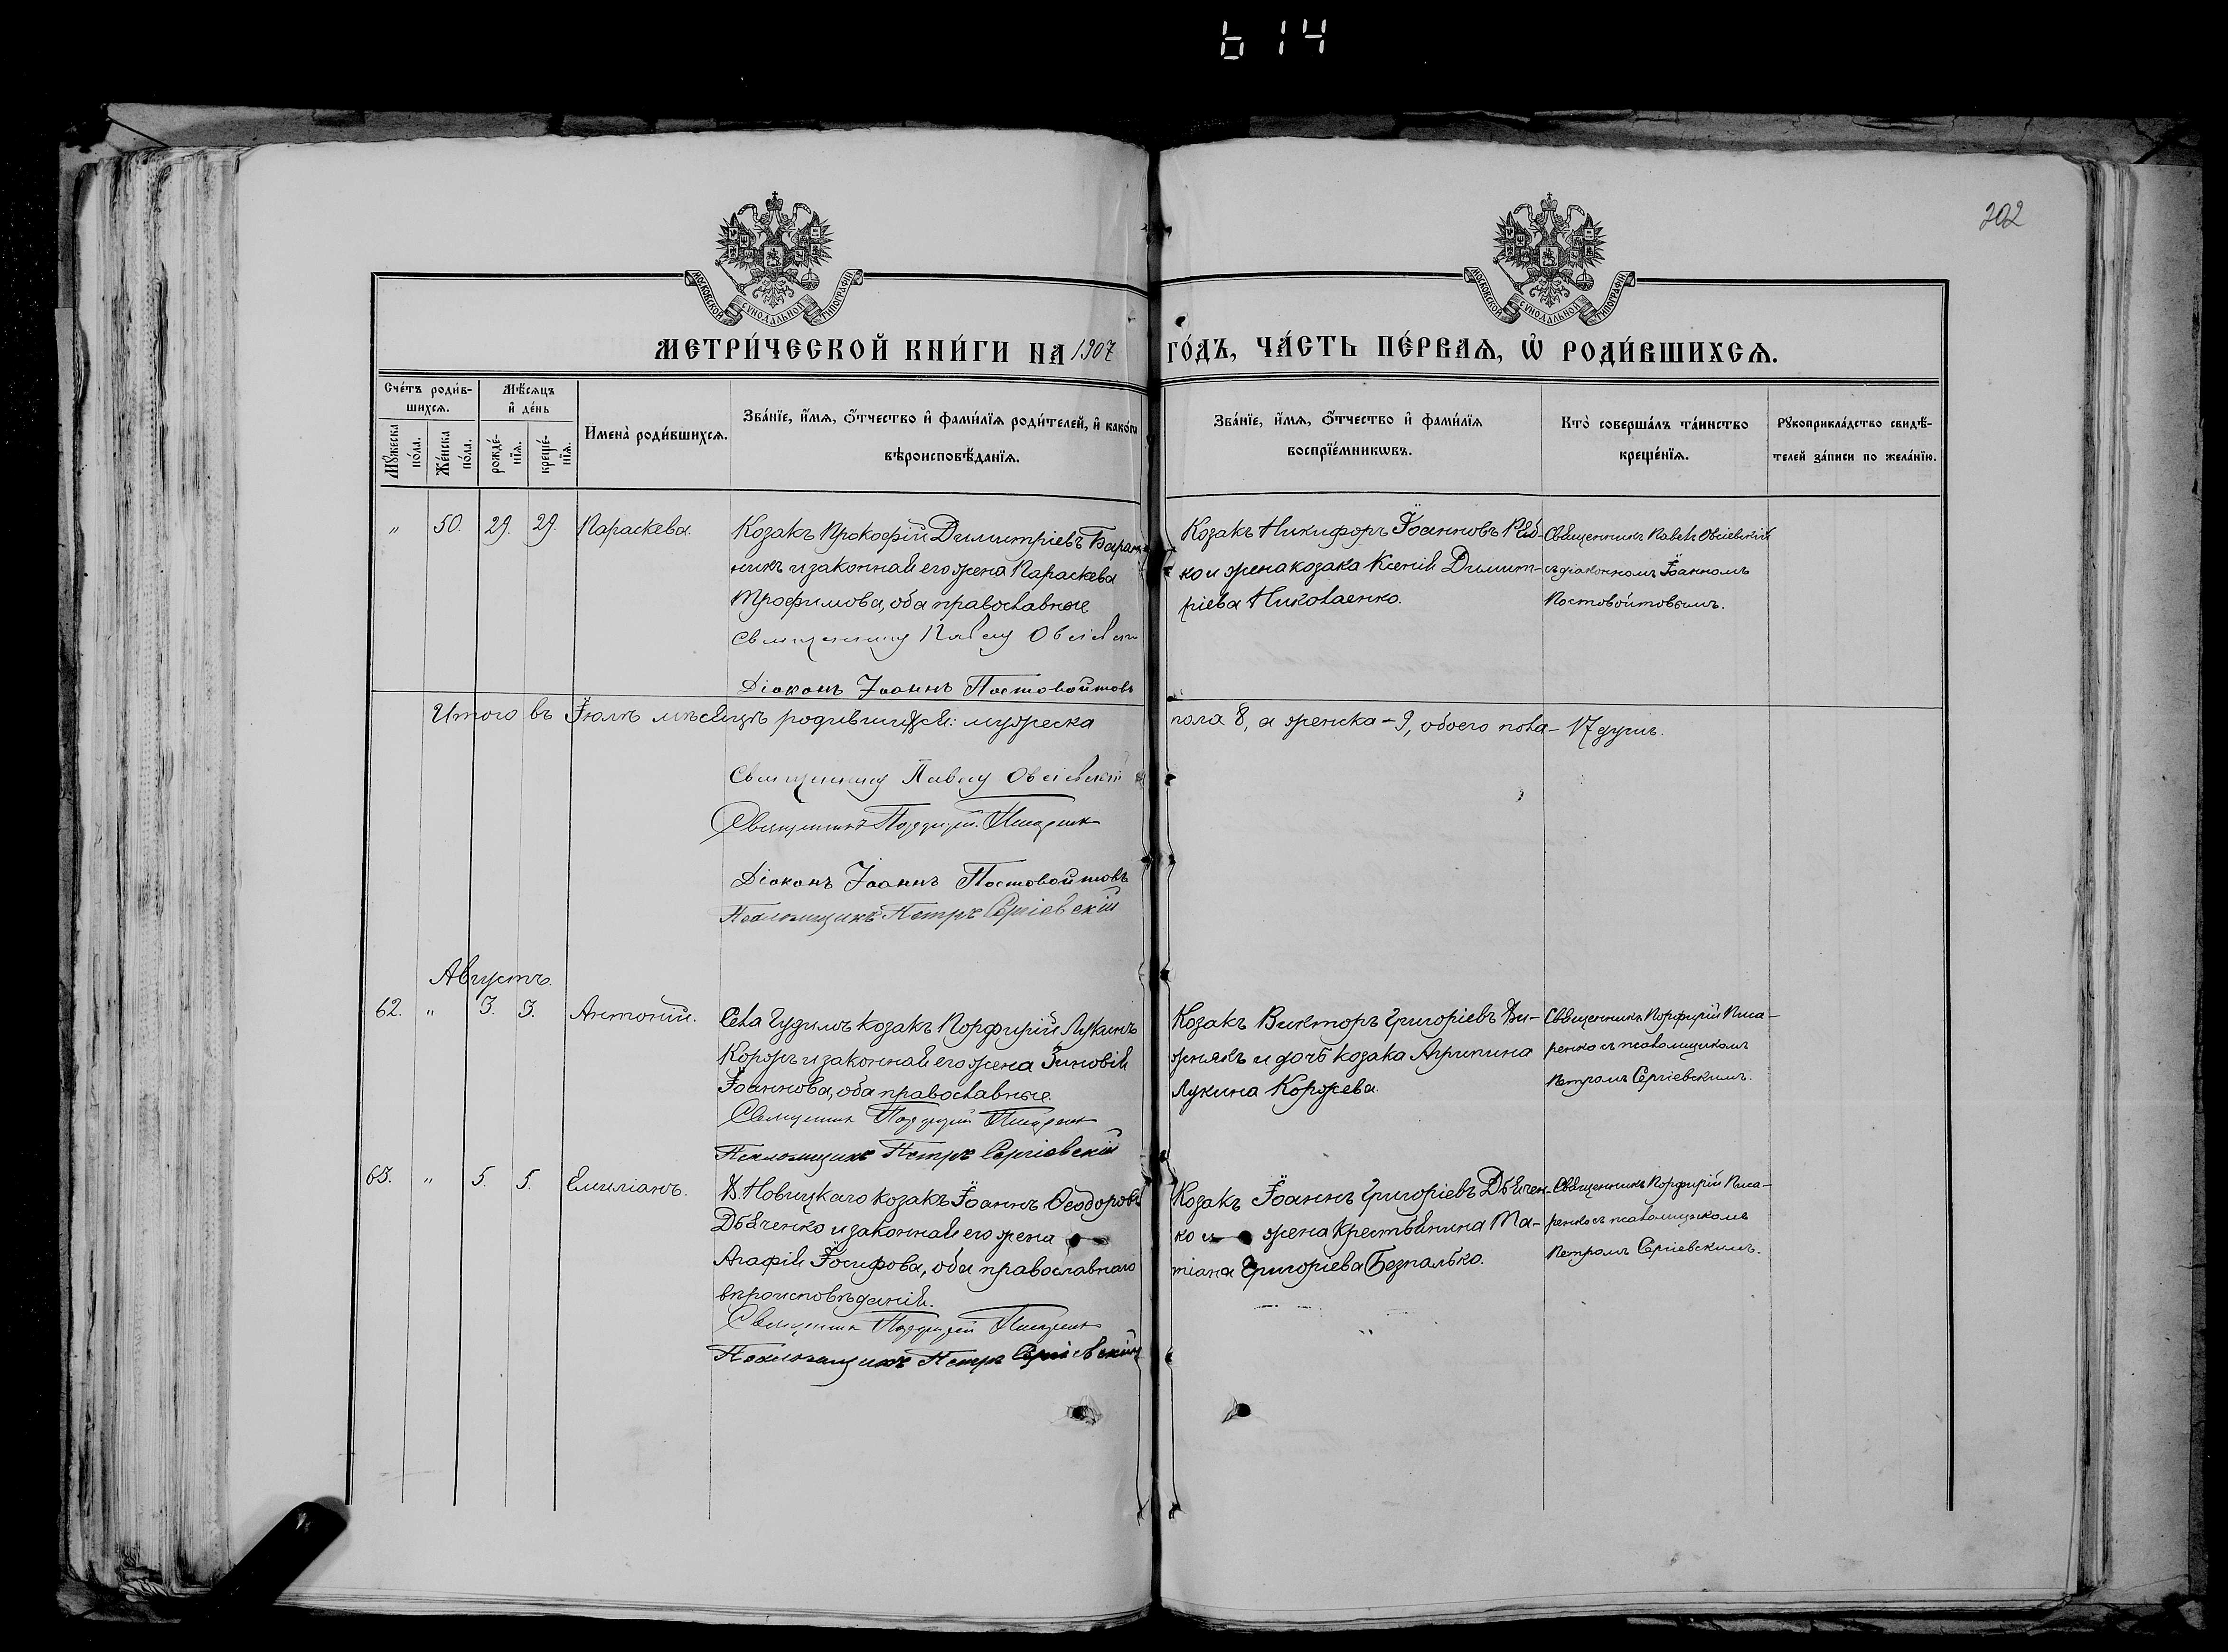 614
202
МОСКОВСКОЙ СѴНОДАЛЬНОЙ ТИПОГРАФІИ
МОСКОВСКОЙ СѴНОДАЛЬНОЙ ТИПОГРАФІИ
МЕТРИ́ЧЕСКОЙ КНИ́ГИ НА 1907 ГО́ДЪ, ЧА́СТЬ ПЕ́РВАѦ, Ѡ҆ РОДИ́ВШИХСѦ.
Сче́тъ роди́в-
шихсѧ.
Мꙋ́жеска по́ла.
Же́нска по́ла.
Мѣ́сѧцъ
и҆ де́нь
рожде́-
нїѧ.
креще́-
нїѧ.
И҆мена̀ роди́вшихсѧ.
Зва́нїе, и҆́мѧ, ѻ҆́тчество и҆ фами́лїѧ роди́телей, и҆ како́гѡ
вѣроисповѣ́данїѧ.
Зва́нїе, и҆́мѧ, ѻ҆́тчество и҆ фами́лїѧ
воспрїе́мникѡвъ.
Кто̀ соверша́лъ та́инство
креще́нїѧ.
Рꙋкоприкла́дство свидѣ́-
телей за́писи по жела́нїю.
„ 50. 29. 29. Параскева.
Козакъ Прокофій Димитріевъ Баран-
никъ и законная его жена Параскева
Трофимова, оба православные
Священникъ Павелъ Овсіевскій
Діаконъ Іоаннъ Постовойтовъ
Козакъ Никифоръ Іоанновъ Ряб-
ко и жена козака Ксенія Димит-
ріева Николаенко.
Священникъ Павелъ Овсіевскій
съ діакономъ Іоанномъ
Постовойтовымъ.
Итого въ Іюлѣ мѣсяцѣ родившихся: мужеска пола 8, а женска - 9, обоего пола - 17 душъ.
Священникъ Павелъ Овсіевскій
Священникъ Порфирій Писаренко
Діаконъ Іоаннъ Постовойтовъ
Псаломщикъ Петръ Сергіевскій
Августъ.
62. „ 3. 3. Антоній.
Села Чудимъ козакъ Порфирій Лукинъ
Коржъ и законная его жена Зиновія
Іоаннова, оба православные.
Священникъ Порфирій Писаренко
Псаломщикъ Петръ Сергіевскій
Козакъ Викторъ Григоріевъ Ви-
жнякъ и дочь козака Агрипина
Лукина Коржева.
Священникъ Порфирій Писа-
ренко съ псаломщикомъ
Петромъ Сергіевскимъ.
63. „ 5. 5. Емиліанъ.
Д. Новицкаго козакъ Іоаннъ Ѳеодоровъ
Дьяченко и законная его жена
Агафія Іосифова, оба православнаго
вѣроисповѣданія.
Священникъ Порфирій Писаренко
Псаломщикъ Петръ Сергіевскій
Козакъ Іоаннъ Григоріевъ Дьячен-
ко и жена крестьянина Та-
тіана Григоріева Безпалько.
Священникъ Порфирій Писа-
ренко съ псаломщикомъ
Петромъ Сергіевскимъ.